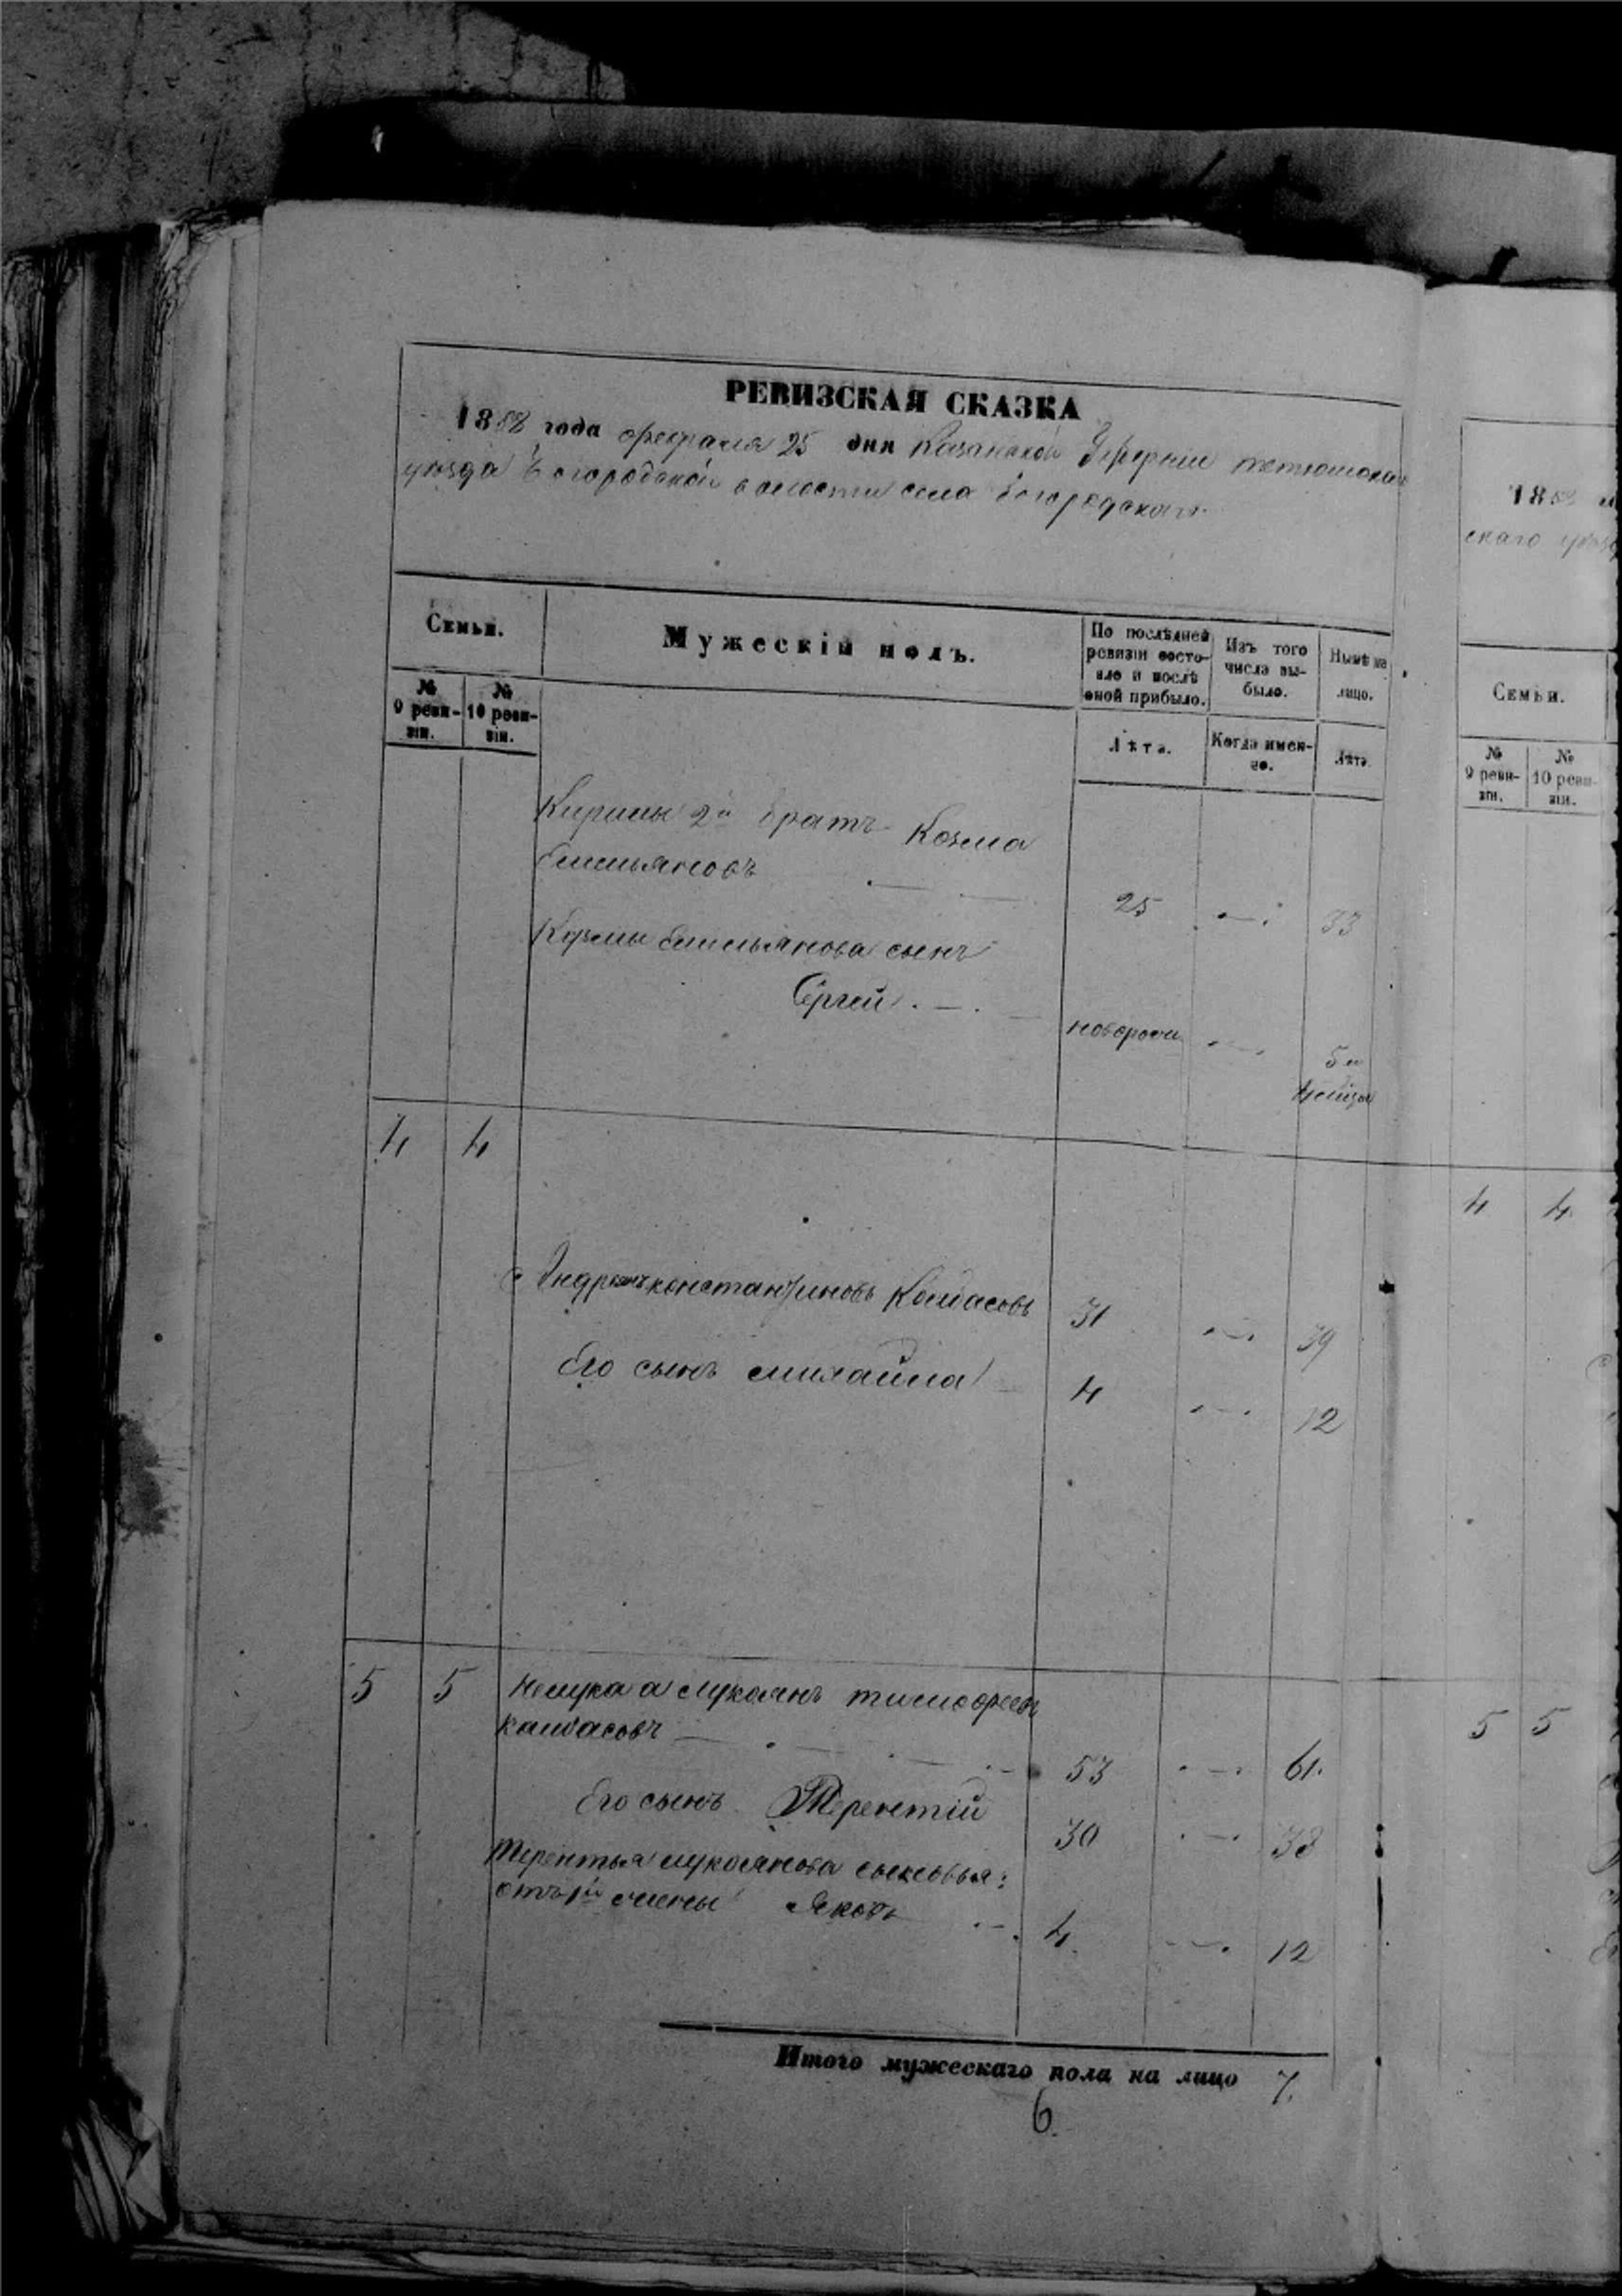 РЕВИЗСКАЯ СКАЗКА
1858 года февраля 25 дня Казанской Губернии тетюшскаго
уезда Богородской волости села Богородскаго
Семьи.
Мужескій полъ.
По послѣдней ревизіи состояло и послѣ оной прибыло.
Изъ того числа выбыло.
Нынѣ на лицо.
№ 9 ревизіи.
№ 10 ревизіи.
Лѣта.
Когда именно.
Лѣта.
Кирилы 2й братъ Козма
Емельяновъ 25 33
Кузмы Емельянова сынъ
Сергей новорож 5 м
4 4
константиновъ 31 39
Его сынъ михайла 4 12
5 5 тимофеевъ
53 61.
Его сынъ Терентій 30 38
Терентья лукоянова сыновья:
отъ 1й жены Яковъ 4. 12
Итого мужескаго пола на лицо 7.
6.
185
скаго уезд
Семьи.
№ 9 ревизіи.
№ 10 ревизіи.
4 4.
5 5